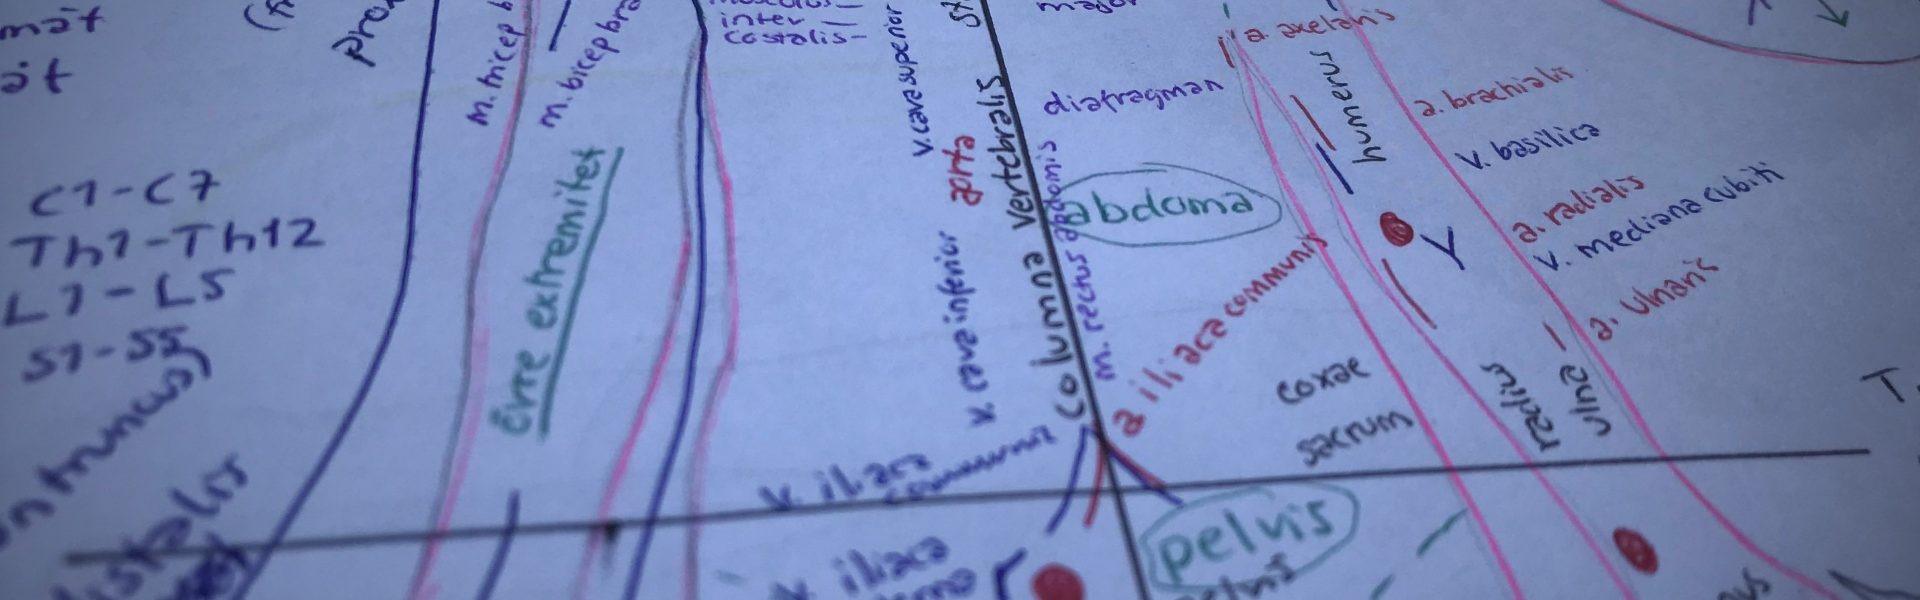 C1-C7
Th1-Th12
L1-L5
S1-S5
truncus)
distalis
m. tricep
m. bicepbra
övre extremitet
inter
costalis-
v. cava superior
aorta
v. cava inferior
columna vertebralis
m. rectus abdomis
v. iliaca
communis
v. iliaca
major
diafragman
abdoma
a iliaca communis
coxae
sacrum
pelvis
pelvis
a. axelaris
humerus
a. brachialis
v. basilica
a. radialis
v. mediana cubiti
a. ulnaris
radius
ulna